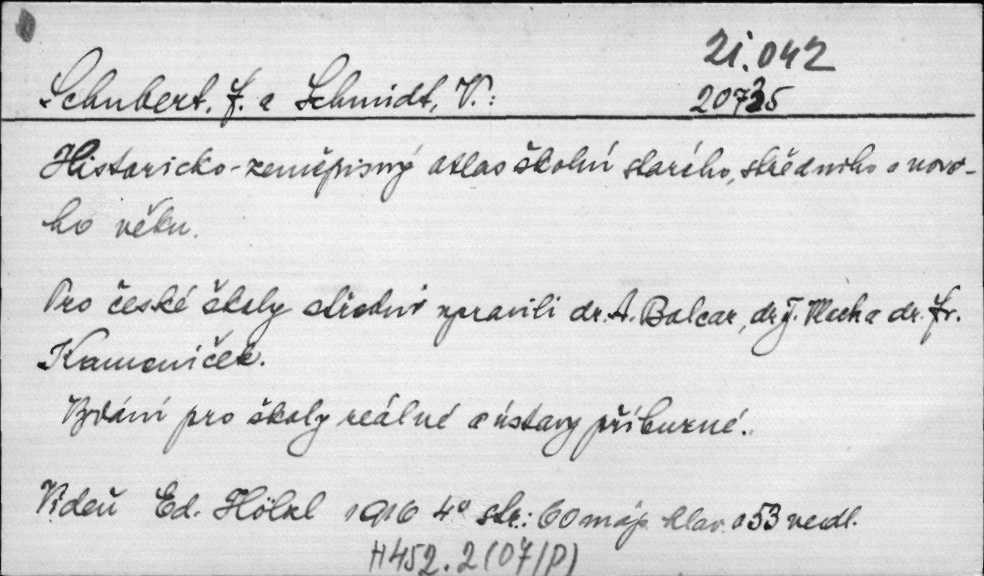 21.042
Schubert, F. a Schmidt, V.:
20735
Historicko-zeměpisný atlas školní starého, středního a nové-
ho věku.
Pro české školy střední upravili dr. A. Balcar, dr. J. Macha dr. Fr.
Kameníček.
Vydání pro školy reálné a ústavy příbuzné.
Vídeň Ed. Hölzl 1916 4° str.: 60 map hlav. a 53 vedl.
H452.2(07/P)